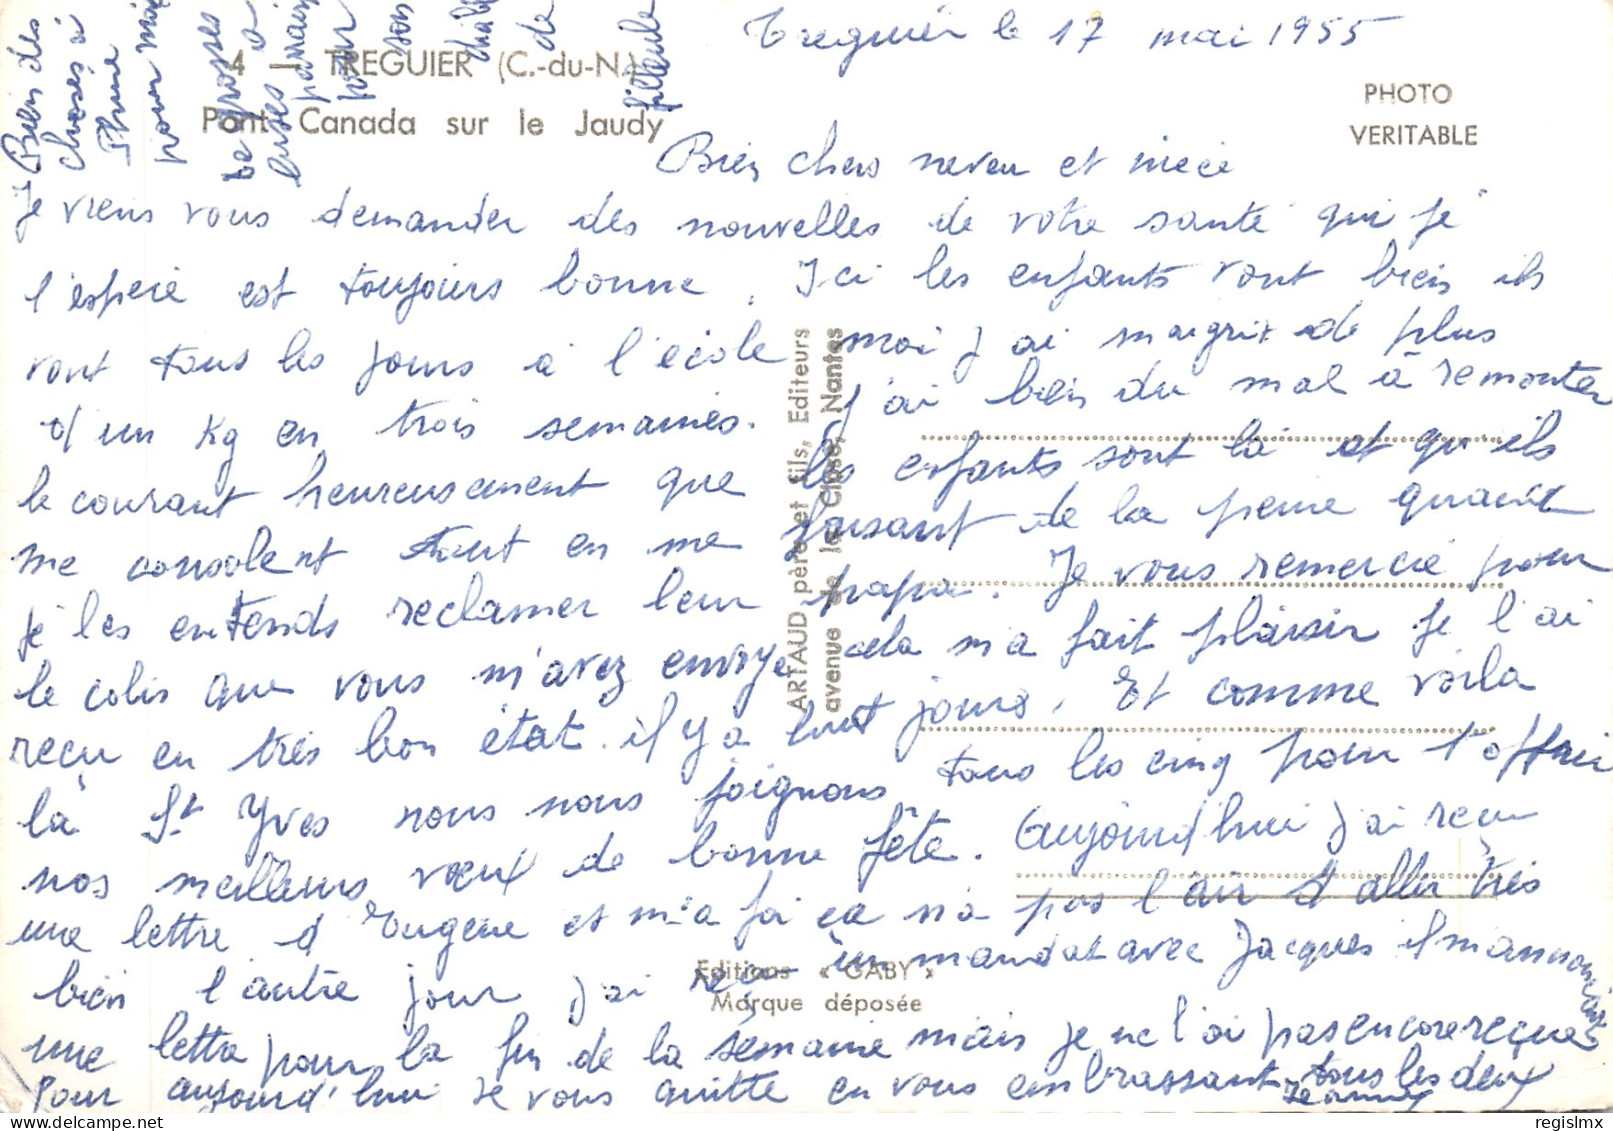 Treguier le 17 mai 1955
4 — TREGUIER (C.-du-N.)
Pont Canada sur le Jaudy
PHOTO
VERITABLE
Bien chers neveu et niece
Je viens vous demander des nouvelles de votre santé qui je
l'espere est toujours bonne. Ici les enfants vont bien ils
vont tous les jours a l'ecole moi j'ai maigrit de plus
d'un kg en trois semaines. J'ai bien du mal à remonter
le courant heureusement que les enfants sont là et qu'ils
me consolent tout en me faisant de la peine quand
je les entends reclamer leur papa. Je vous remercie pour
le colis que vous m'avez envoye cela m'a fait plaisir je l'ai
reçu en très bon état il y a huit jours. Et comme voila
la St Yves nous nous joignons tous les cinq pour t'offrir
nos meilleurs vœux de bonne fête. Aujourd'hui j'ai reçu
une lettre d'Eugene et ma foi ça n'a pas l'air d'aller très
bien l'autre jour j'ai reçu un mandat avec Jacques il m'annonçait
une lettre pour la fin de la semaine mais je ne l'ai pas encore reçue
Pour aujourd'hui Je vous quitte en vous embrassant tous les deux
Jeanne
Bien des
choses à
pour
de grosses
bises a
parrain
pour
son
de
filleule
ARTAUD père et fils, Editeurs
avenue de la Close, Nantes
Editions « GABY »
Marque déposée
regislmx